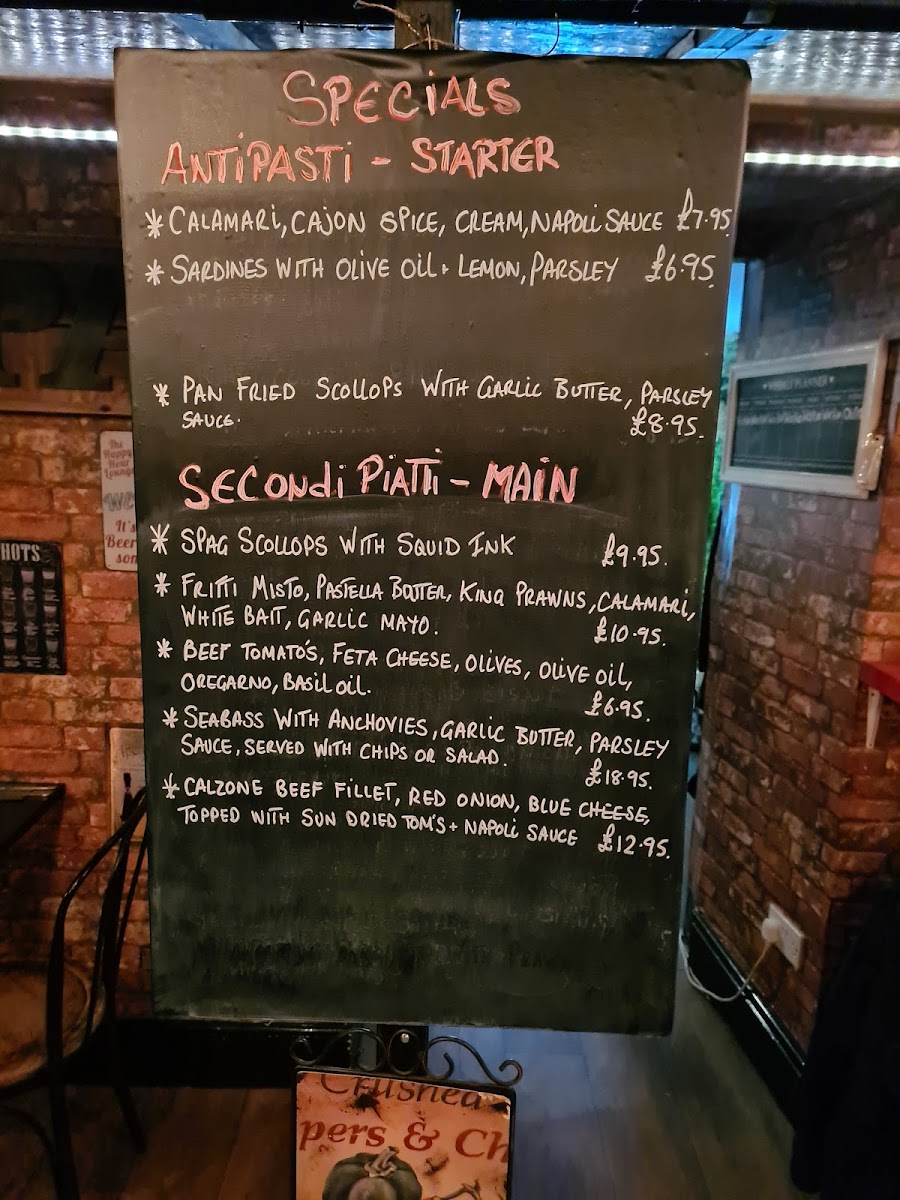 SPECIALS
ANTIPASTI - STARTER
* CALAMARI, CAJON SPICE, CREAM, NAPOLI SAUCE £7.95
* SARDINES WITH OLIVE OIL + LEMON, PARSLEY £6.95
* PAN FRIED SCOLLOPS WITH GARLIC BUTTER, PARSLEY
SAUCE. £8.95.
SECONDI PIATTI - MAIN
* SPAG SCOLLOPS WITH SQUID INK £9.95.
* FRITTI MISTO, PASTELLA BATTER, KING PRAWNS, CALAMARI,
WHITE BAIT, GARLIC MAYO. £10.95.
* BEEF TOMATO'S, FETA CHEESE, OLIVES, OLIVE OIL,
OREGARNO, BASIL OIL. £6.95.
* SEABASS WITH ANCHOVIES, GARLIC BUTTER, PARSLEY
SAUCE, SERVED WITH CHIPS OR SALAD. £18.95.
* CALZONE BEEF FILLET, RED ONION, BLUE CHEESE,
TOPPED WITH SUN DRIED TOM'S + NAPOLI SAUCE £12.95.
The
Happy
Hour
Lounge
It's
Beer
HOTS
WEEKLY PLANNER
Crushed
pers & Ch